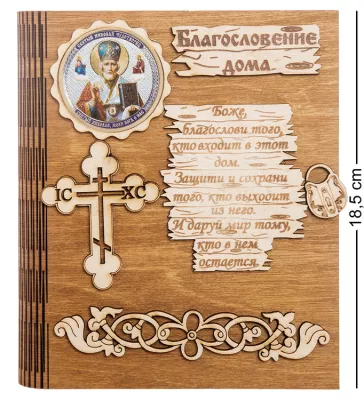 БЛАГОСЛОВЕНИЕ
ДОМА
Боже,
благослови того,
кто входит в этот
дом.
Защити и сохрани
того, кто выходит
из него.
И даруй мир тому,
кто в нем
остается.
IC XC
18,5 cm